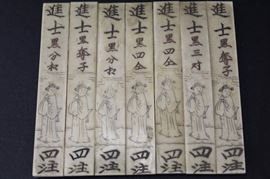 進士黑分相
四注
進士黑奪子
四注
進士黑分相
四注
進士黑四仝
四注
進士黑四仝
四注
進士黑三对
四注
進士黑奪子
四注